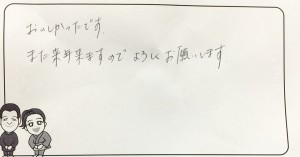 おいしかったです。
また来年来ますので よろしくお願いします